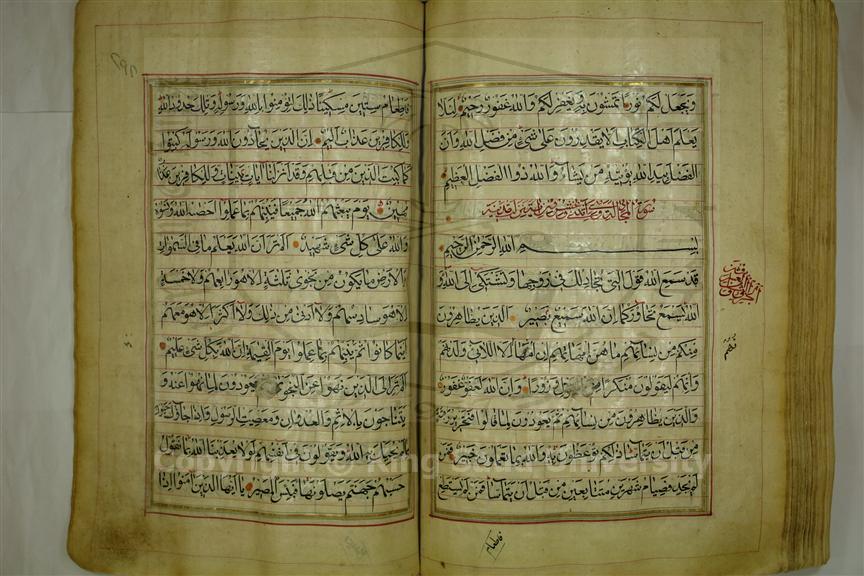 ويجعل لكم نورا تمشون به ويغفر لكم والله غفور رحيم لئلا
يعلم اهل الكتاب الا يقدرون على شئ من فضل الله وان
الفضل بيد الله يؤتيه من يشاء والله ذوا الفضل العظيم
سورة المجادلة
بسم الله الرحمن الرحيم
قد سمع الله قول التي تجادلك في زوجها وتشتكي الى الله و
الله يسمع تحاوركما ان الله سميع بصير الذين يظاهرون
منكم من نسائهم ما هن امهاتهم ان امهاتهم الا اللائي ولدنهم
وانهم ليقولون منكرا من القول وزورا وان الله لعفو غفور
والذين يظاهرون من نسائهم ثم يعودون لما قالوا فتحرير رقبة
من قبل ان يتماسا ذلكم توعظون به والله بما تعملون خبير فمن
لم يجد فصيام شهرين متتابعين من قبل ان يتماسا فمن لم يستطع
فاطعام
فاطعام ستين مسكينا ذلك لتؤمنوا بالله ورسوله وتلك حدود الله
وللكافرين عذاب اليم ان الذين يحادون الله ورسوله كبتوا
كما كبت الذين من قبلهم وقد انزلنا ايات بينات وللكافرين عذاب
مهين يوم يبعثهم الله جميعا فينبئهم بما عملوا احصاه الله ونسوه
والله على كل شئ شهيد الم تر ان الله يعلم ما في السموات
وما في الارض ما يكون من نجوى ثلثة الا هو رابعهم ولا خمسة
الا هو سادسهم ولا ادنى من ذلك ولا اكثر الا هو معهم
اينما كانوا ثم ينبئهم بما عملوا يوم القيمة ان الله بكل شئ عليم
الم تر الى الذين نهوا عن النجوى ثم يعودون لما نهوا عنه و
يتناجون بالاثم والعدوان ومعصيت الرسول واذا جاؤك حيوك
بما لم يحيك به الله ويقولون في انفسهم لولا يعذبنا الله بما نقول
حسبهم جهنم يصلونها فبئس المصير يا ايها الذين امنوا اذا
Copyright © King Saud University